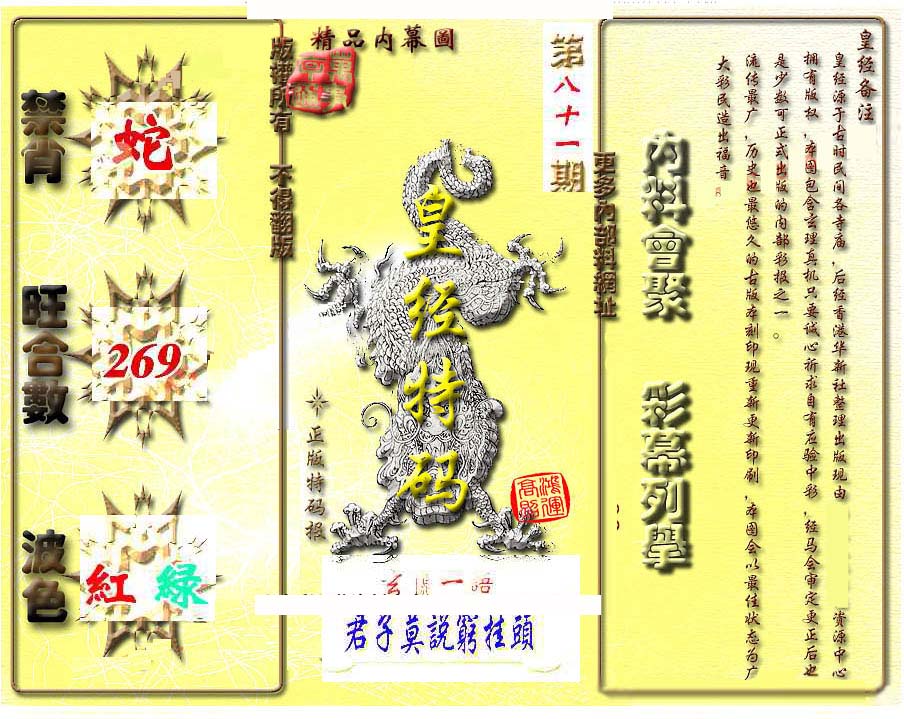 精品内幕圖
第八十一期
版權所有 不得翻版
禁肖
蛇
旺合數
269
波色
紅 緑
皇经特码
正版特码报
鸿運
高照
一語
君子莫說窮挂頭
更多内部料網址
内料會聚
彩幕列舉
皇经备注
皇经源于古时民间各寺庙,后经香港华新社整理出版现由 资源中心
拥有版权,本图包含玄理真机只要诚心祈求自有应验中彩,经马会审定更正后也
是少数可正式出版的内部彩报之一。
流传最广,历史也最悠久的古版本刻印现重新更新印刷,本图会以最佳状态为广
大彩民造出福音